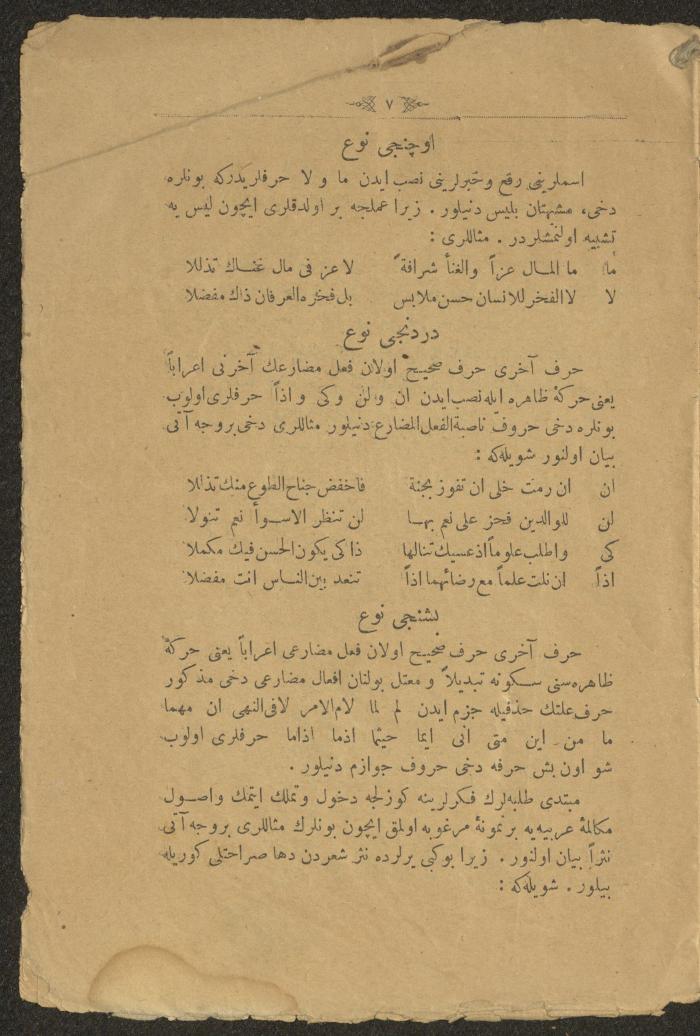 ٧
اوچنجی نوع
اسملرینی رفع وخبرلرینی نصب ایدن ما و لا حرفلریدرکه بونلره
دخی، مشبهتان بلیس دنیلور . زیرا عملجه بر اولدقلری ایچون لیس یه
تشبیه اولنمشلردر . مثاللری :
ما ما المال عزاً والغنأ شرافة لا عز فی مال غناك تذللا
لا لا الفخر للانسان حسن ملابس بل فخره العرفان ذاك مفضلا
دردنجی نوع
حرف آخری حرف صحیح اولان فعل مضارعك آخرنی اعراباً
یعنی حرکهٔ ظاهره ایله نصب ایدن ان ولن وکی و اذاً حرفلری اولوب
بونلره دخی حروف ناصبة الفعل المضارع دنیلور مثاللری دخی بروجه آتی
بیان اولنور شویله که :
ان ان رمت خلی ان تفوز بجنة فاخفض جناح الطوع منك تذللا
لن للوالدین فحز علی نعم بها لن تنظر الاسوأ نعم تنولا
کی واطلب علوماً اذ عسیك تنالها ذاکی یکون الحسن فیك مکملا
اذاً ان نلت علماً مع رضائهما اذاً تنعد بین الناس انت مفضلا
بشنجی نوع
حرف آخری حرف صحیح اولان فعل مضارعی اعراباً یعنی حرکهٔ
ظاهره سنی سکونه تبدیلاً و معتل بولنان افعال مضارعی دخی مذکور
حرف علتك حذفیله جزم ایدن لم لما لام الامر لافی النهی ان مهما
ما من این متی انی ایما حیثما اذما اذاما حرفلری اولوب
شو اون بش حرفه دخی حروف جوازم دنیلور .
مبتدی طلبه لرك فکرلرینه کوزلجه دخول وتملك ایتمك واصول
مکالمهٔ عربیه یه بر نمونهٔ مرغوبه اولمق ایچون بونلرك مثاللری بروجه آتی
نثراً بیان اولنور . زیرا بوکبی یرلرده نثر شعردن دها صراحتلی کوریله
بیلور . شویله که :